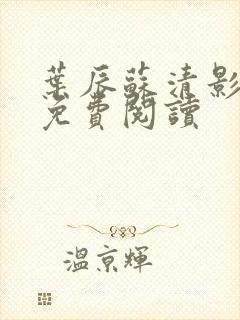 葉辰蘇清影
免費閱讀
溫京輝